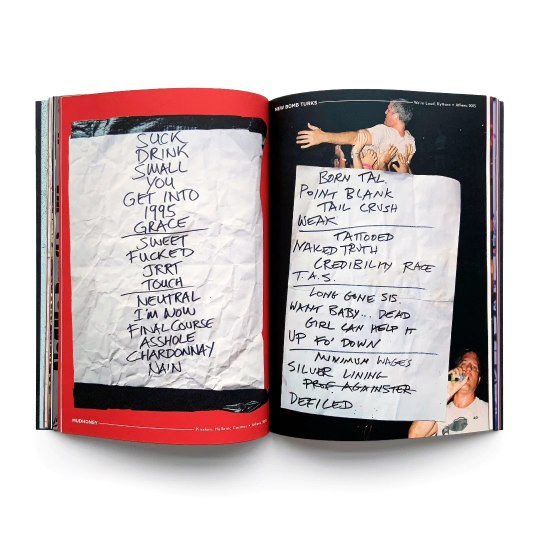 SUCK
DRINK
SMALL
YOU
GET INTO
1995
GRACE
SWEET
FUCKED
JRRT
TOUCH
NEUTRAL
I'M NOW
FINAL COURSE
ASSHOLE
CHARDONNAY
NAIN
MUDHONEY
NEW BOMB TURKS
We're Loud, Kyttaro • Athens, 2015
BORN TAL
POINT BLANK
TAIL CRUSH
WEAK
TATTOOED
NAKED TRUTH
CREDIBILITY RACE
T.A.S.
LONG GONE SIS.
WANT BABY... DEAD
GIRL CAN HELP IT
UP FO' DOWN
MINIMUM WAGES
SILVER LINING
PROF AGAINSTER
DEFILED